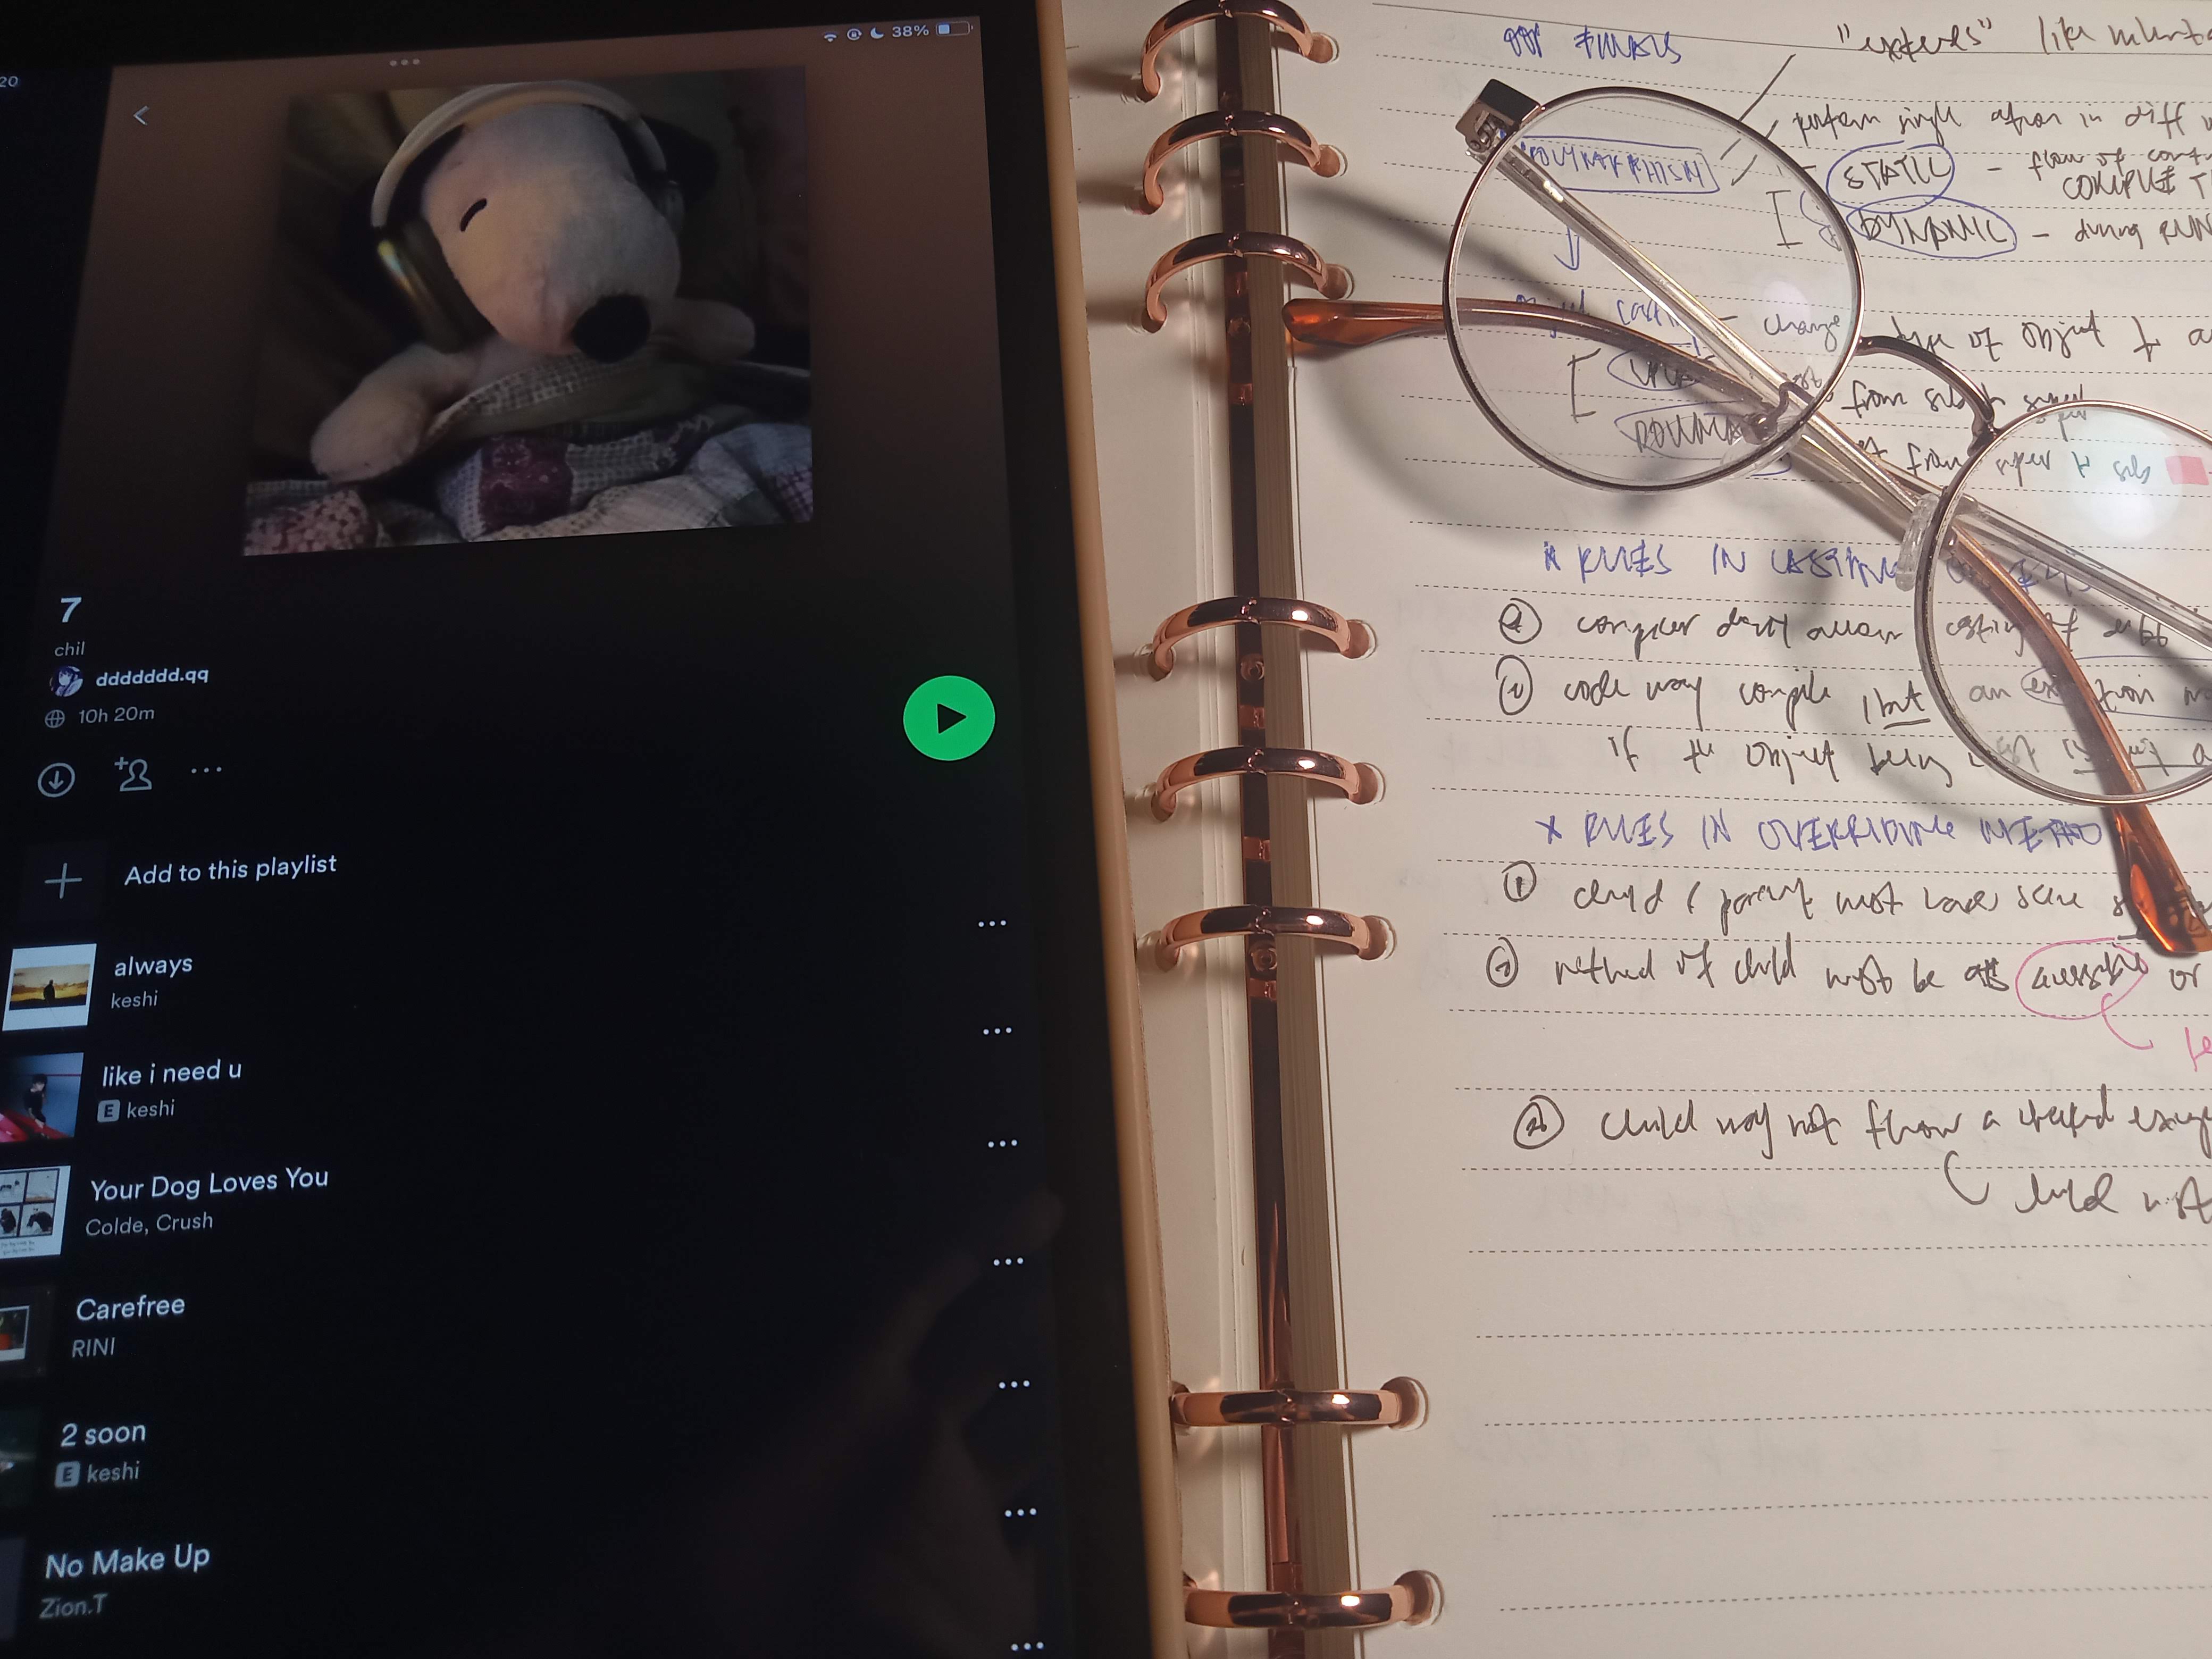 20
38%
7
chil
ddddddd.qq
10h 20m
Add to this playlist
always
keshi
like i need u
E keshi
Your Dog Loves You
Colde, Crush
Carefree
RINI
2 soon
E keshi
No Make Up
Zion.T
"extends" like
perform single action in diff
POLYMORPHISM
STATIC - flow of
COMPILE
DYNAMIC - during RUN
casting - change type of object
from sub
from super
RULES IN CASTING
compiler don't allow casting of diff
code may compile, but an
if the object being is not a
* RULES IN OVERRIDING METHO
① child & parent must have same
② method of child must be as accessible or
child may not throw a checked
child